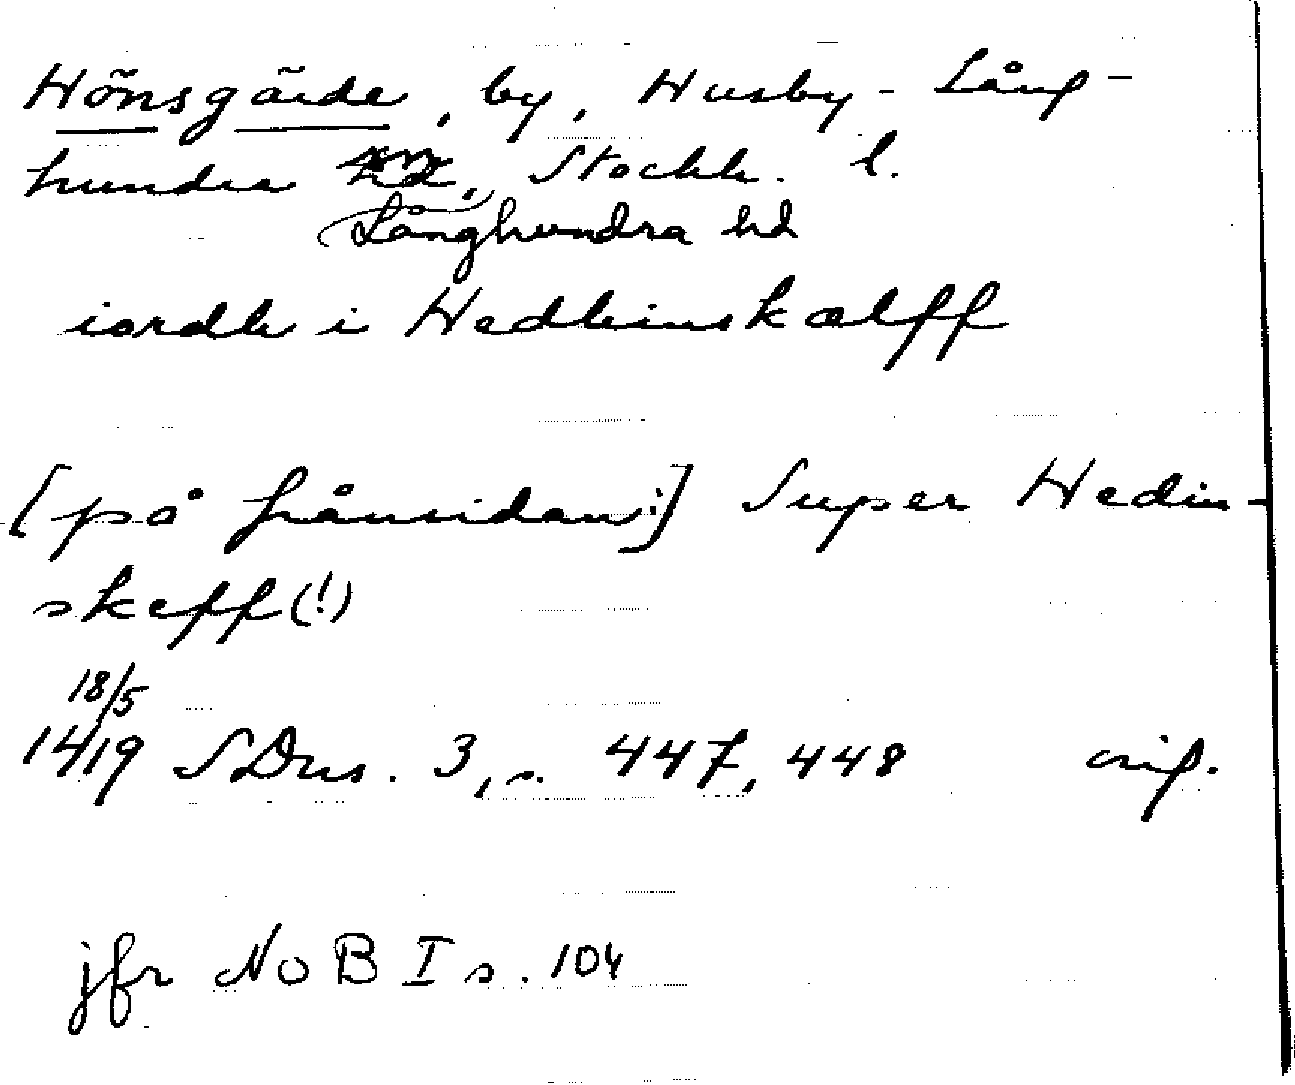 Hönsgärde, by, Husby-Lång-
hundra sn, Stockh. l.
Långhundra hd
iordh i Hedhinskælff
[på frånsidan:] Super Hedin-
skeff(!)
18/5
1419 SDns. 3, s. 447, 448 orig.
jfr NoB I s. 104